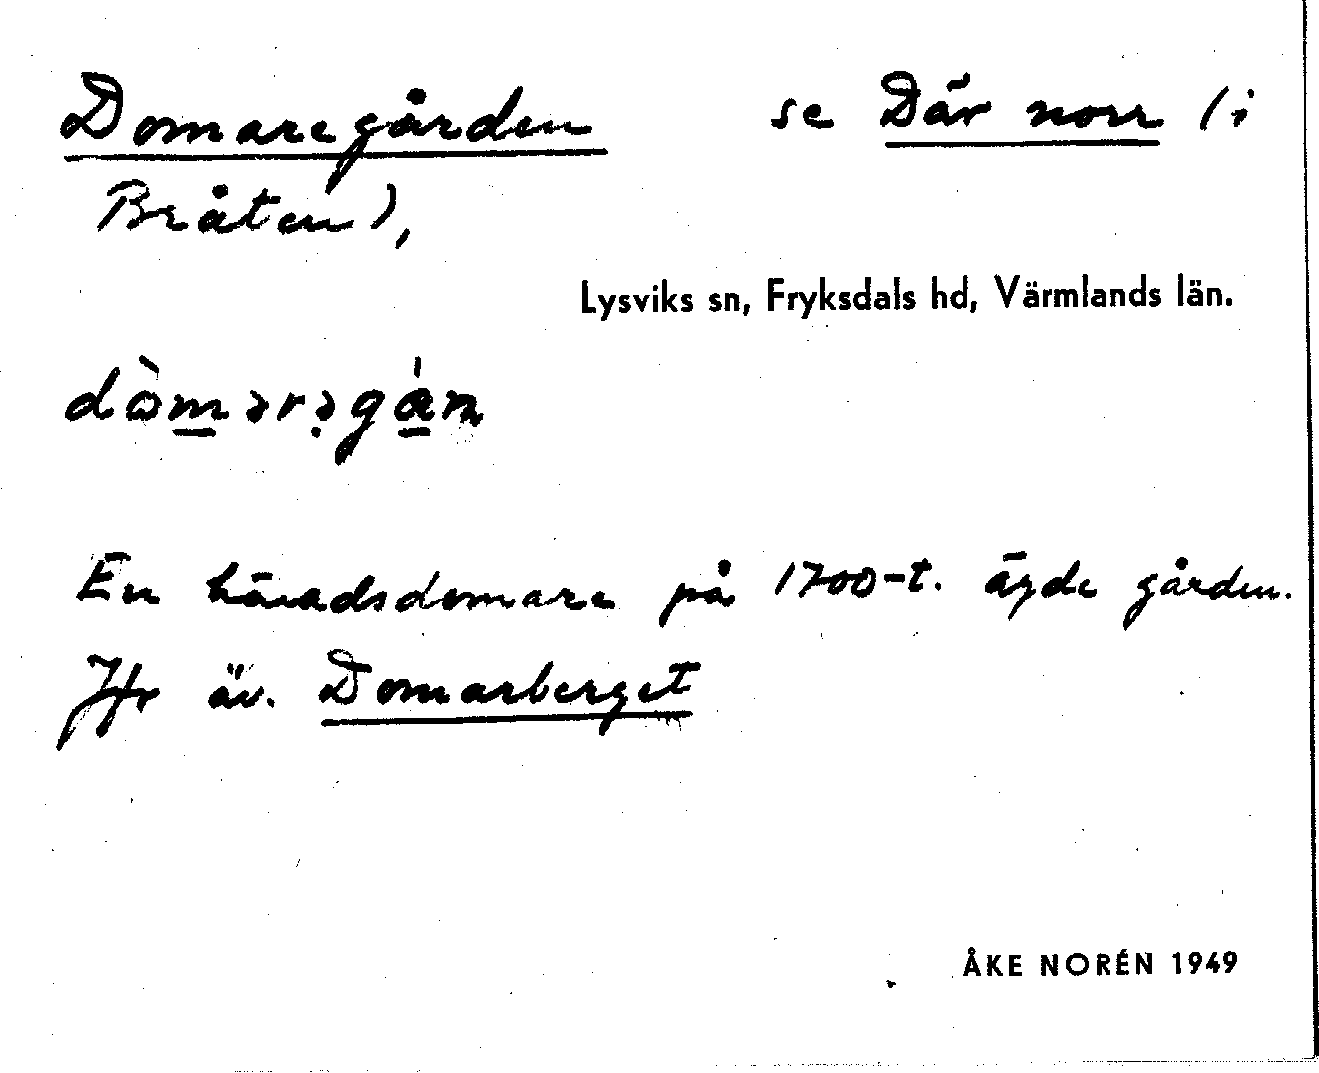 Domaregården se Där norr (i
Bråten),
Lysviks sn, Fryksdals hd, Värmlands län.
En häradsdomare på 1700-t. ägde gården.
Jfr äv. Domarberget
ÅKE NORÉN 1949